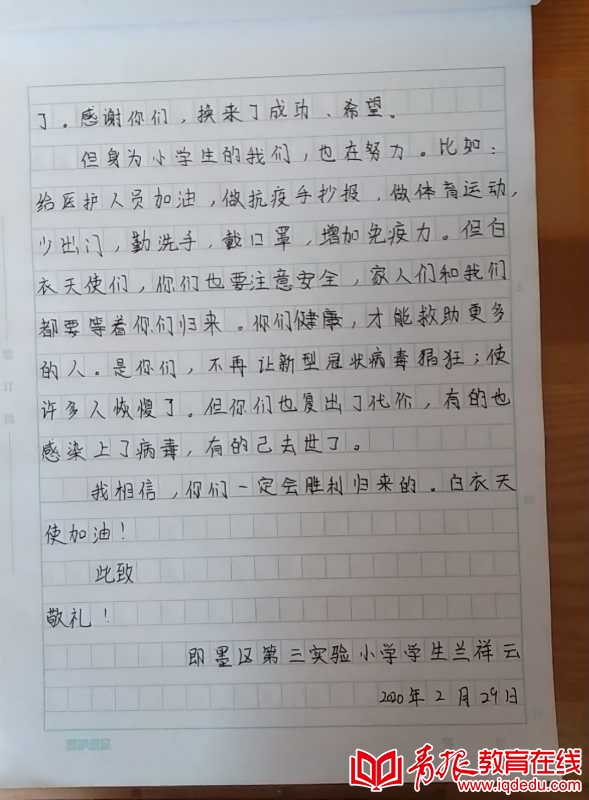 了。感谢你们，换来了成功、希望。
但身为小学生的我们，也在努力。比如：
给医护人员加油，做抗疫手抄报，做体育运动，
少出门，勤洗手，戴口罩，增加免疫力。但白
衣天使们，你们也要注意安全，家人们和我们
都要等着你们归来。你们健康，才能救助更多
的人。是你们，不再让新型冠状病毒猖狂；使
许多人恢慢了。但你们也复出了代价，有的也
感染上了病毒，有的己去世了。
我相信，你们一定会胜利归来的。白衣天
使加油！
此致
敬礼！
即墨区第三实验小学学生兰祥云
2020年2月29日
青报教育在线
www.iqdedu.com